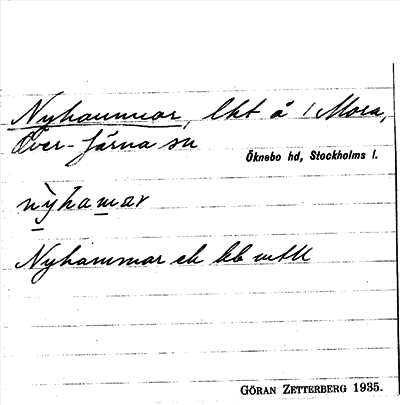 Nyhammar, lht å 1 Mora,
Över-Järna sn
Öknebo hd, Stockholms l.
nỳhamar
Nyhammar ek bb wtll
GÖRAN ZETTERBERG 1935.